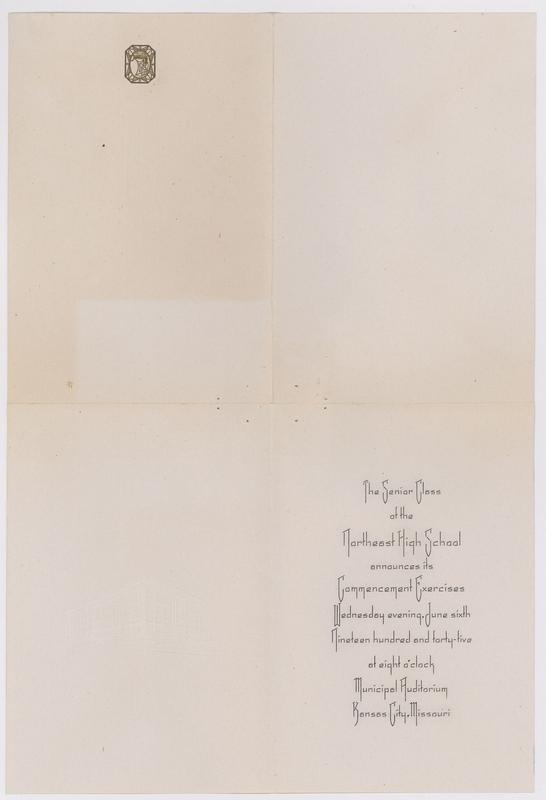 The Senior Class
of the
Northeast High School
announces its
Commencement Exercises
Wednesday evening, June sixth
Nineteen hundred and forty-five
at eight o'clock
Municipal Auditorium
Kansas City, Missouri